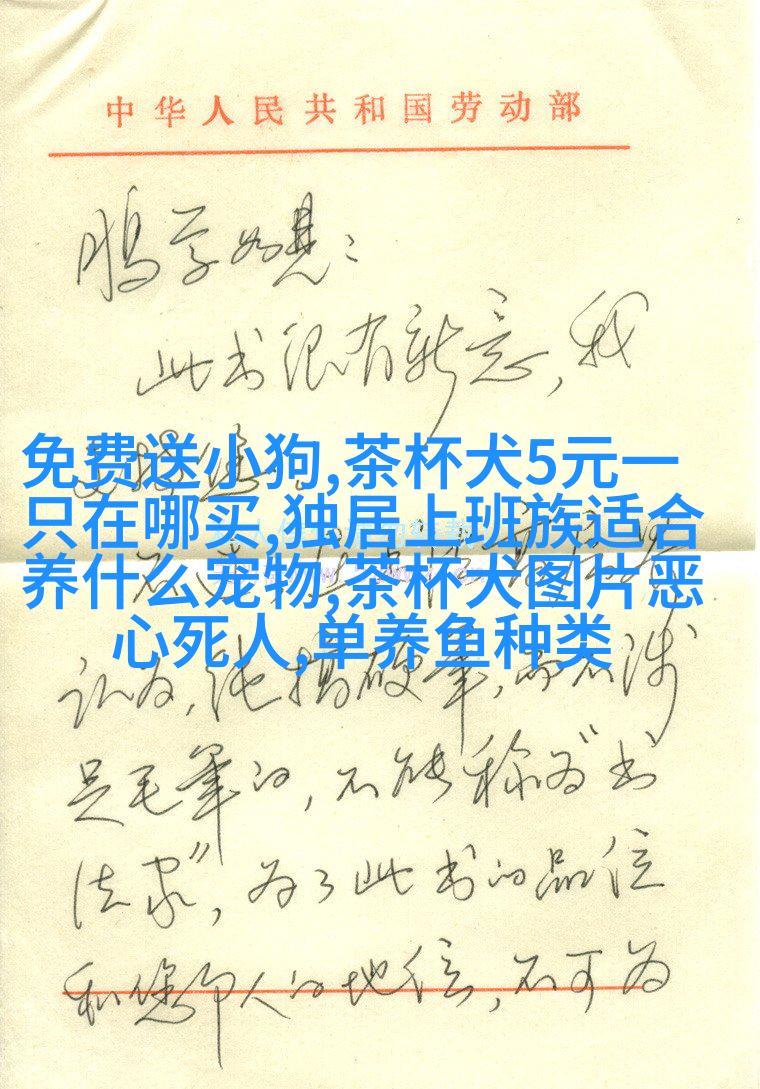 中华人民共和国劳动部
鹏学如晤：
此书很有新意，我
免费送小狗,茶杯犬5元一
只在哪买,独居上班族适合
养什么宠物,茶杯犬图片恶
心死人,单养鱼种类
认为，纯搞硬笔，而不涉
足毛笔的，不能称为“书
法家”，为了此书的品位
和您个人的地位，不可为